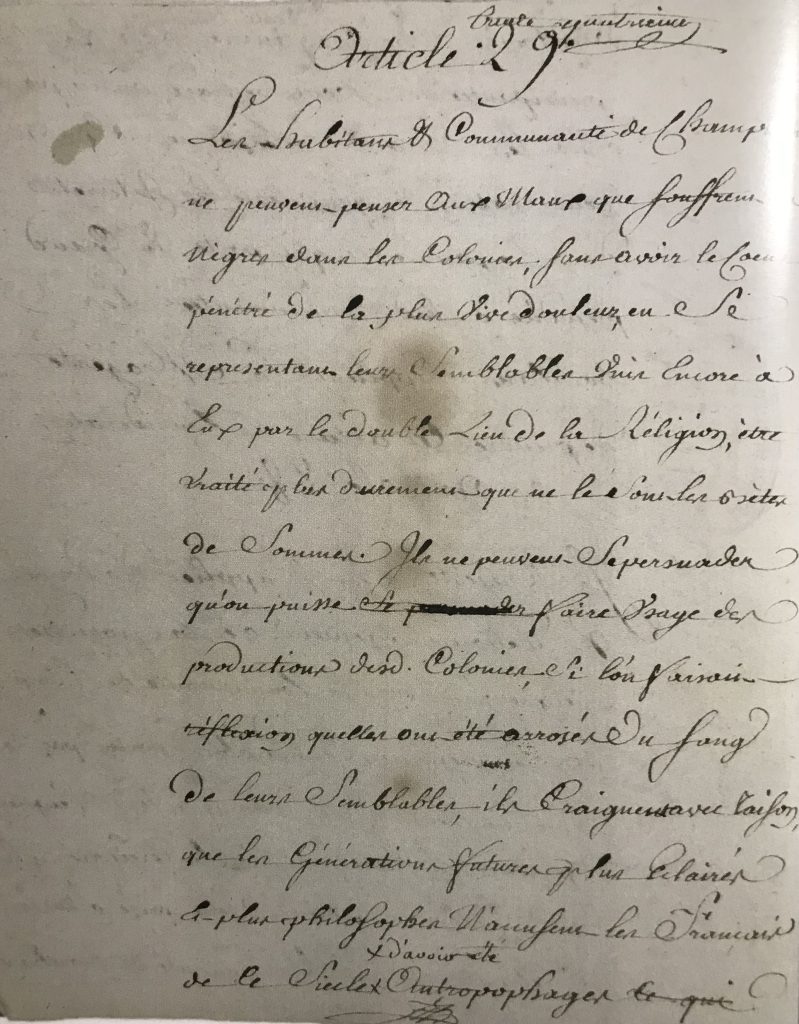 trente quatrieme
Article 29.
Les habitans & Communauté de Champ
ne peuvens penser aux Maux que souffrens
Nigres dans les Colonies, sans avoir le Coeu
pénétré de la plus Vive douleur, en Se
représentans leurs Semblables Unis Encore à
Eux par le double Lien de la Réligion, être
traité plus durement que ne le Sont les Bêtes
de Sommes. Ils ne peuvens Se persuader
qu'on puisse Se persuader faire Usage des
productions desd. Colonies, Si l'on faisait
réflexion quelles ont été arrosés du Sang
de leurs Semblables, ils Craignent avec raison,
que les Générations futures plus Eclairés
Et plus philosophes N'accusent les Français
de ce Siecle x d'avoir été Antropophages ce qui